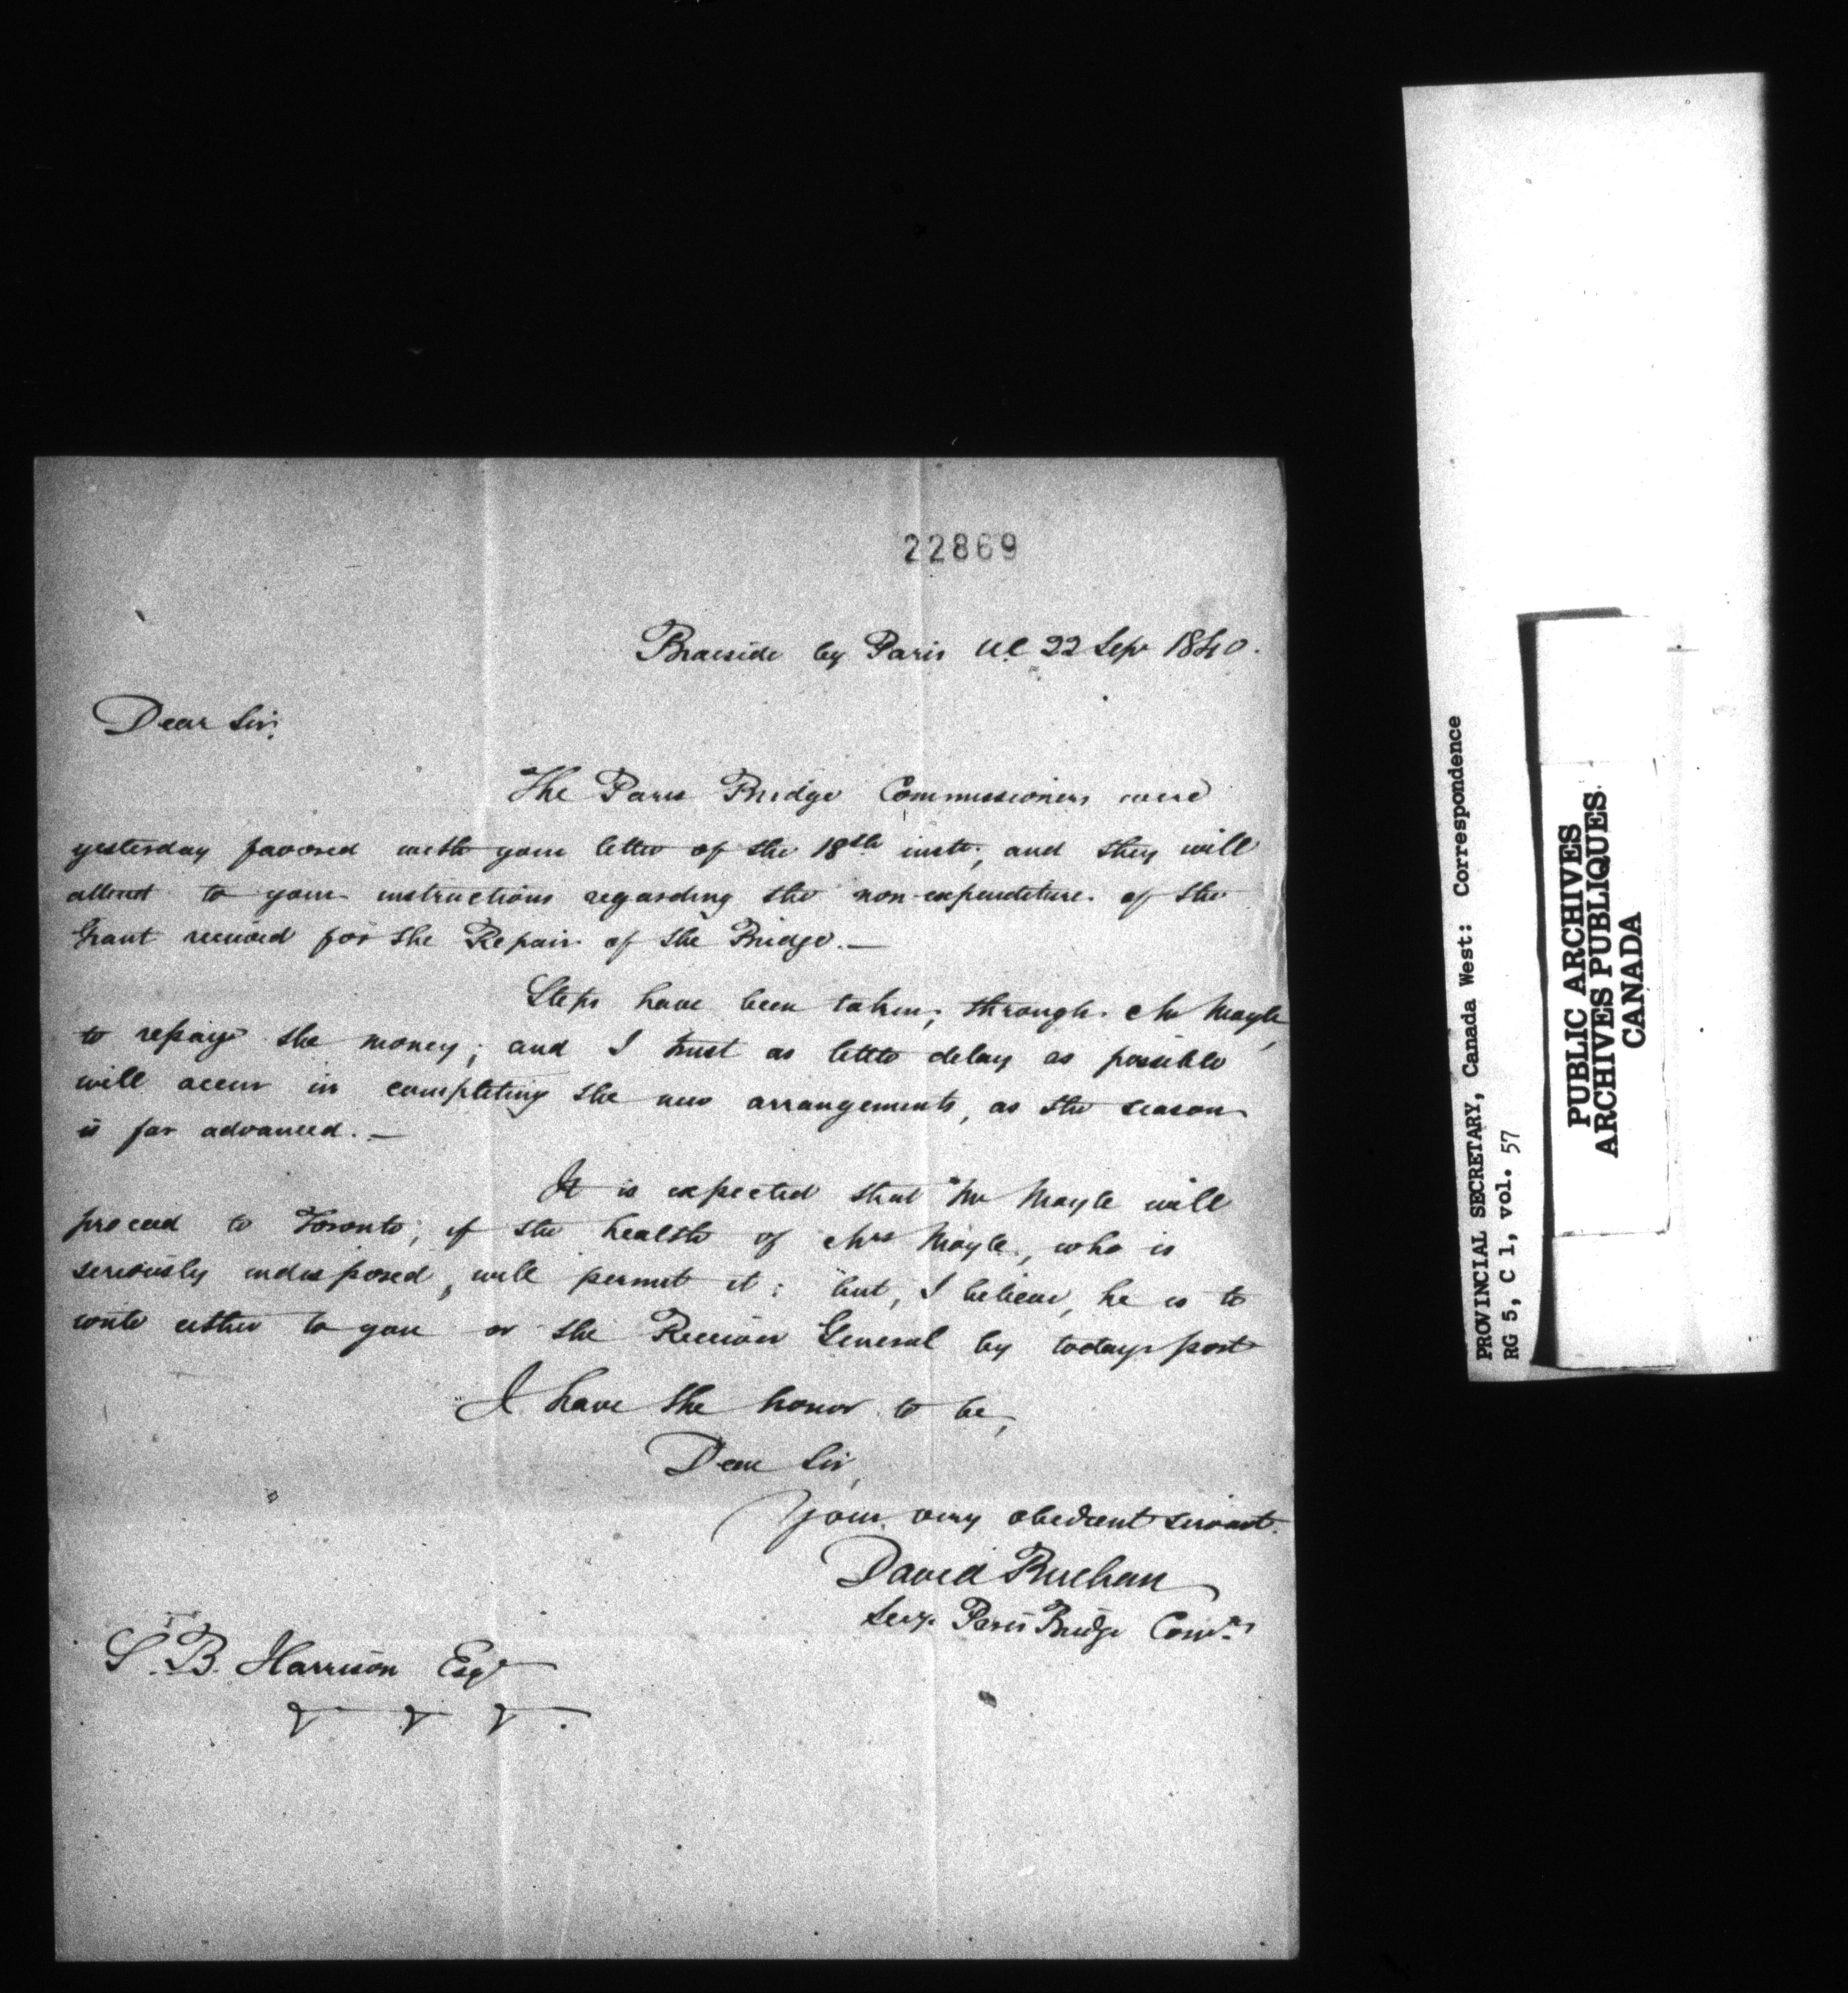 22869
Braeside by Paris UC 22 Sepr 1840.
Dear Sir,
The Paris Bridge Commissioners were
yesterday favored with your letter of the 18th inst., and they will
attend to your instructions regarding the non-expenditure of the
Grant received for the Repair of the Bridge. —
Steps have been taken, through Mr Mayle,
to repay the money; and I trust as little delay as possible
will occur in completing the new arrangements, as the season
is far advanced. —
It is expected that Mr Mayle will
proceed to Toronto, if the health of Mrs Mayle, who is
seriously indisposed, will permit it; but, I believe, he is to
write either to you or the Receiver General by todays post
I have the honor to be,
Dear Sir,
Your very obedient servant.
David Buchan
Secy. Paris Bridge Comrs
S. B. Harrison Esqr
PROVINCIAL SECRETARY, Canada West: Correspondence
RG 5, C 1, vol. 57
PUBLIC ARCHIVES
ARCHIVES PUBLIQUES
CANADA